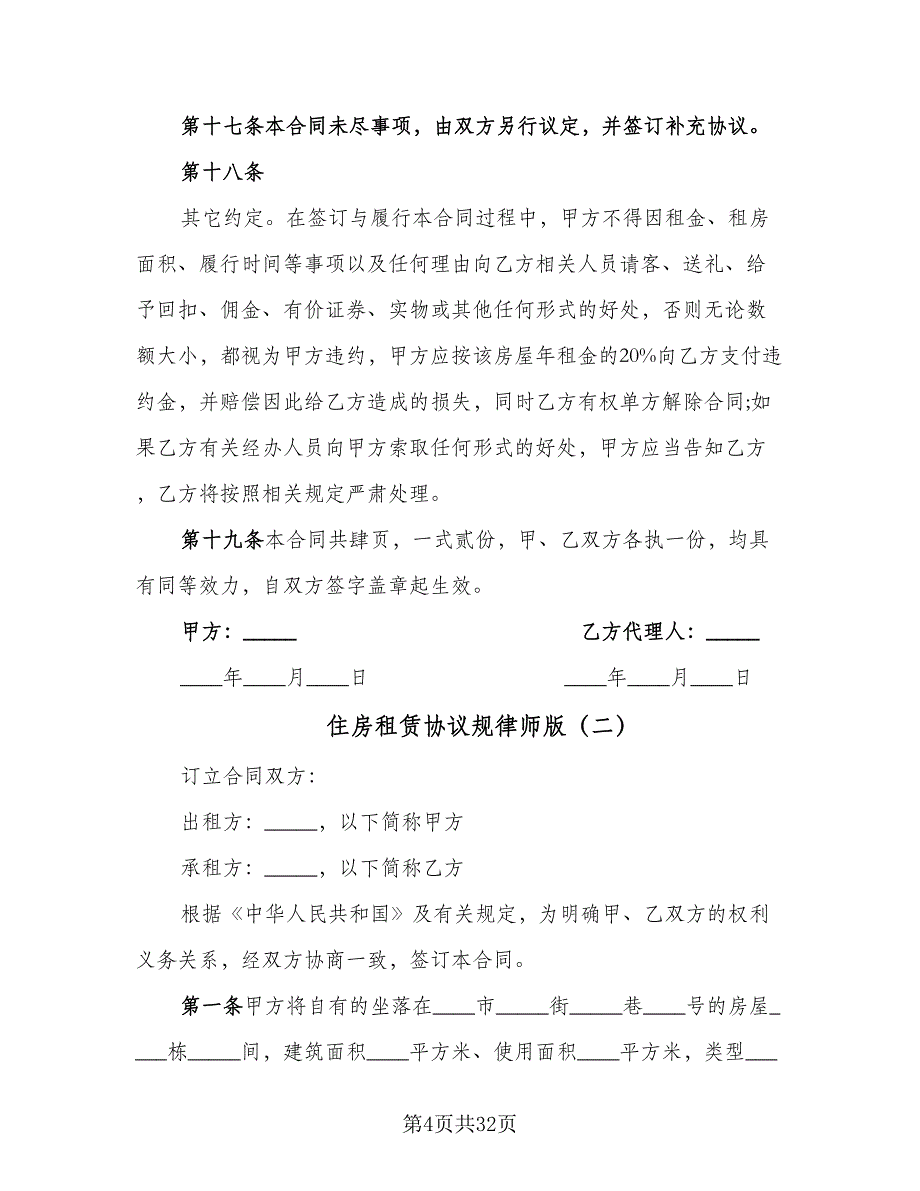 第十七条本合同未尽事项，由双方另行议定，并签订补充协议。
第十八条
其它约定。在签订与履行本合同过程中，甲方不得因租金、租房
面积、履行时间等事项以及任何理由向乙方相关人员请客、送礼、给
予回扣、佣金、有价证券、实物或其他任何形式的好处，否则无论数
额大小，都视为甲方违约，甲方应按该房屋年租金的20%向乙方支付违
约金，并赔偿因此给乙方造成的损失，同时乙方有权单方解除合同;如
果乙方有关经办人员向甲方索取任何形式的好处，甲方应当告知乙方
，乙方将按照相关规定严肃处理。
第十九条本合同共肆页，一式贰份，甲、乙双方各执一份，均具
有同等效力，自双方签字盖章起生效。
甲方：_____ 乙方代理人：_____
____年____月____日 ____年____月____日
住房租赁协议规律师版（二）
订立合同双方：
出租方：_____，以下简称甲方
承租方：_____，以下简称乙方
根据《中华人民共和国》及有关规定，为明确甲、乙双方的权利
义务关系，经双方协商一致，签订本合同。
第一条甲方将自有的坐落在____市_____街_____巷____号的房屋_
___栋_____间，建筑面积____平方米、使用面积____平方米，类型___
第4页共32页